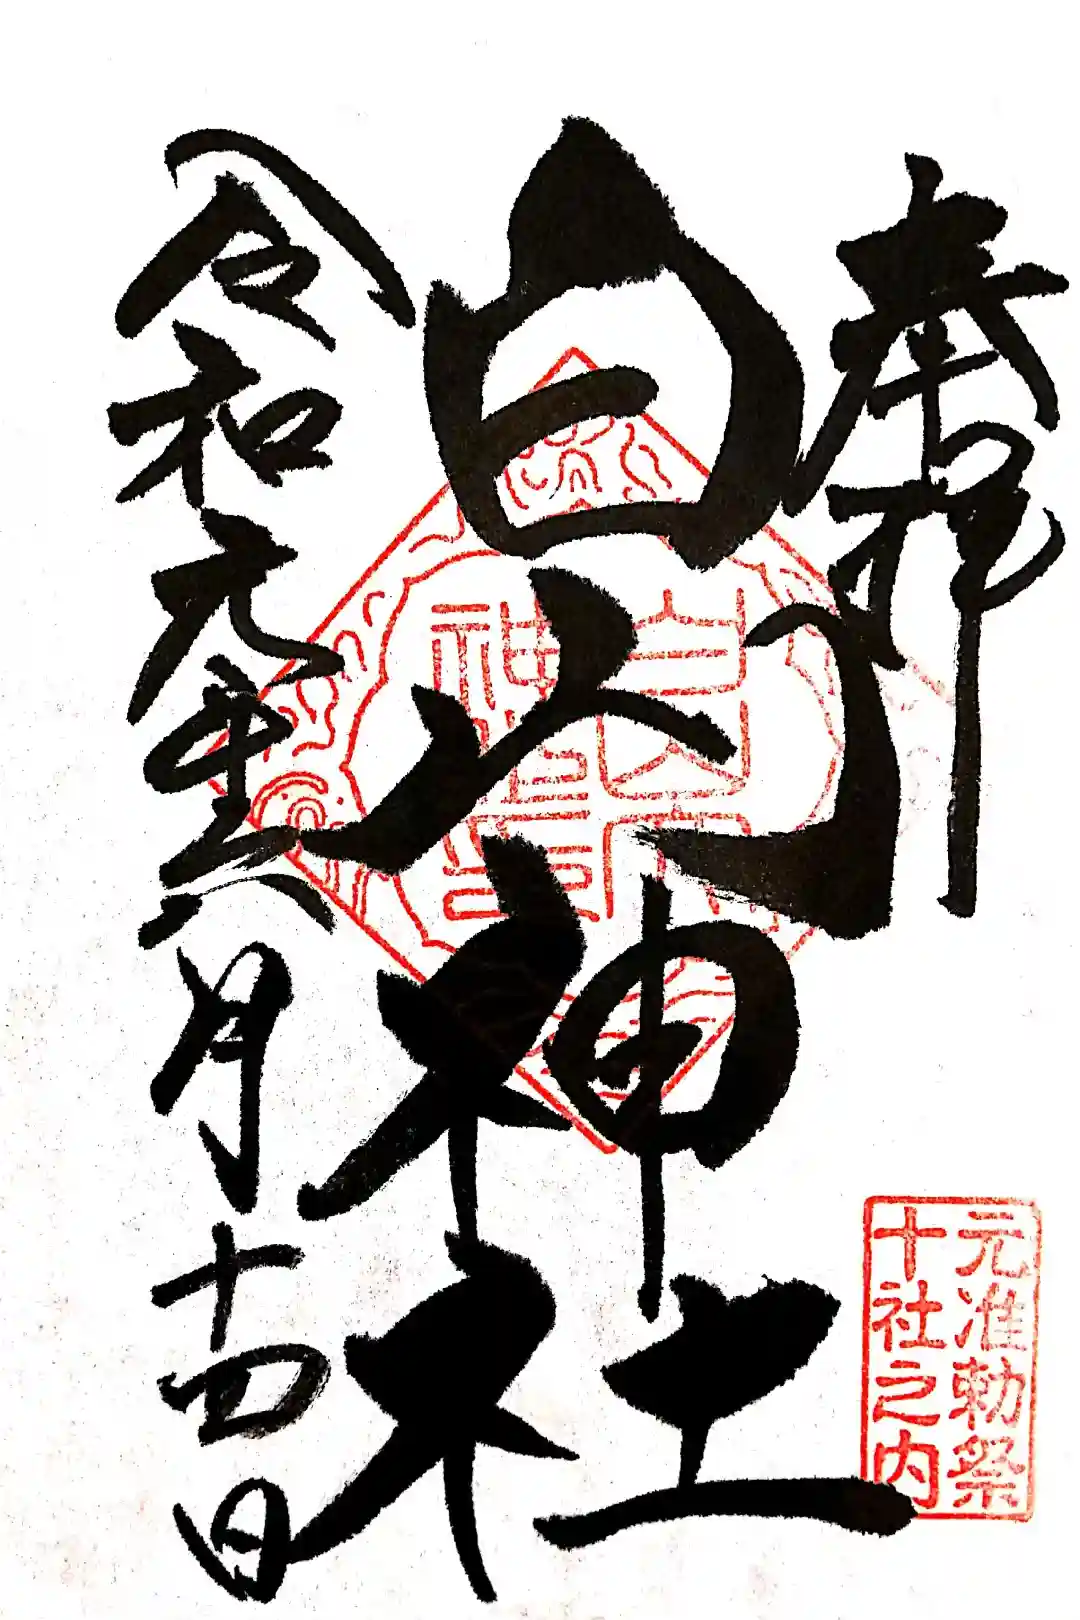 奉拝
白山神社
令和元年六月十四日
白山
神社
元准勅祭
十社之内